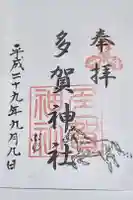 奉拝
多賀神社
平成二十九年九月九日